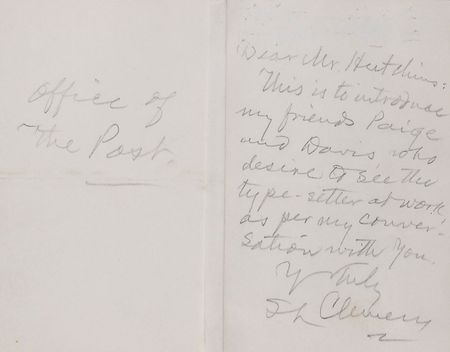 Office of
The Post.
Dear Mr. Hutchins:
This is to introduce
my friends Paige
and Davis who
desire to see the
type-setter at work,
as per my conver-
sation with you.
Y Truly
SL Clemens